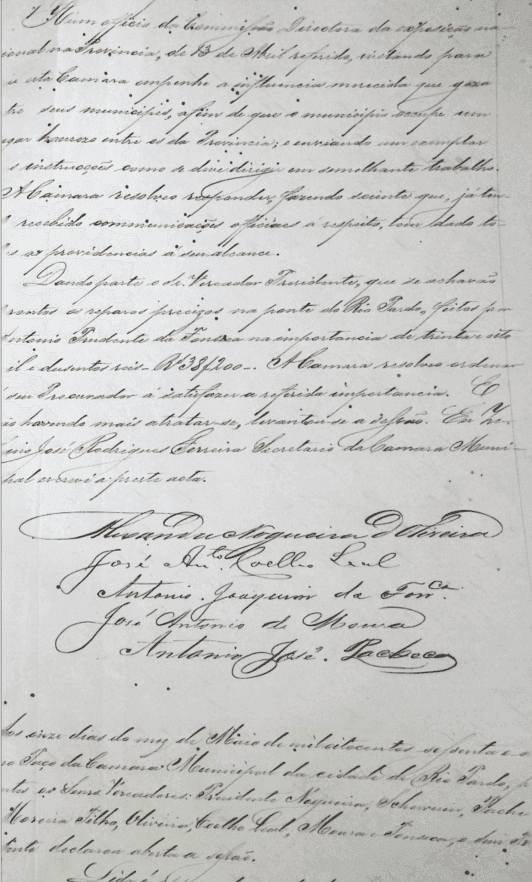 Hum officio da Commissão Directora da exposição na-
cional na Provincia, de 13 de Abril referido, incitando para
esta Camara empenhe a influencia merecida que goza
seus municipes, afim de que o municipio occupe um
lugar honrozo entre os da Provincia; e enviando um exemplar
instrucções como se deve dirigir em semelhante trabalho.
A Camara resolveo responder, fazendo sciente que, já ten
recebido communicações officiaes á respeito, tem dado to-
as providencias á seu alcance.
Dando parte o Sr. Vereador Presidente, que se achavão
os reparos precizos na ponte do Rio Pardo, feitos por
Antonio Prudente da Fonseca na importancia de trinta e oito
mil e dusentos reis - Rs 38$200 -. A Camara resolveo ordenar
seu Procurador á satisfazer a referida importancia. E
is havendo mais a tratar-se, levantou-se a sessão. Eu
José Rodrigues Ferreira Secretario da Camara Muni-
escrevi a prezte acta.
Alexandre Nogueira d'Oliveira
José Anto. Coelho Leal
Antonio Joaquim da Fonca.
José Antonio de Moura
Antonio José Pacheco
Aos onze dias do mez de Maio de mil oitocentos sessenta e
no Paço da Camara Municipal da cidade de Rio Pardo,
os Senrs Vereadores: Presidente Nogueira, Pache
Moreira Filho, Oliveira, Coelho Leal, Moura e Fonseca, o
declarou aberta a sessão.